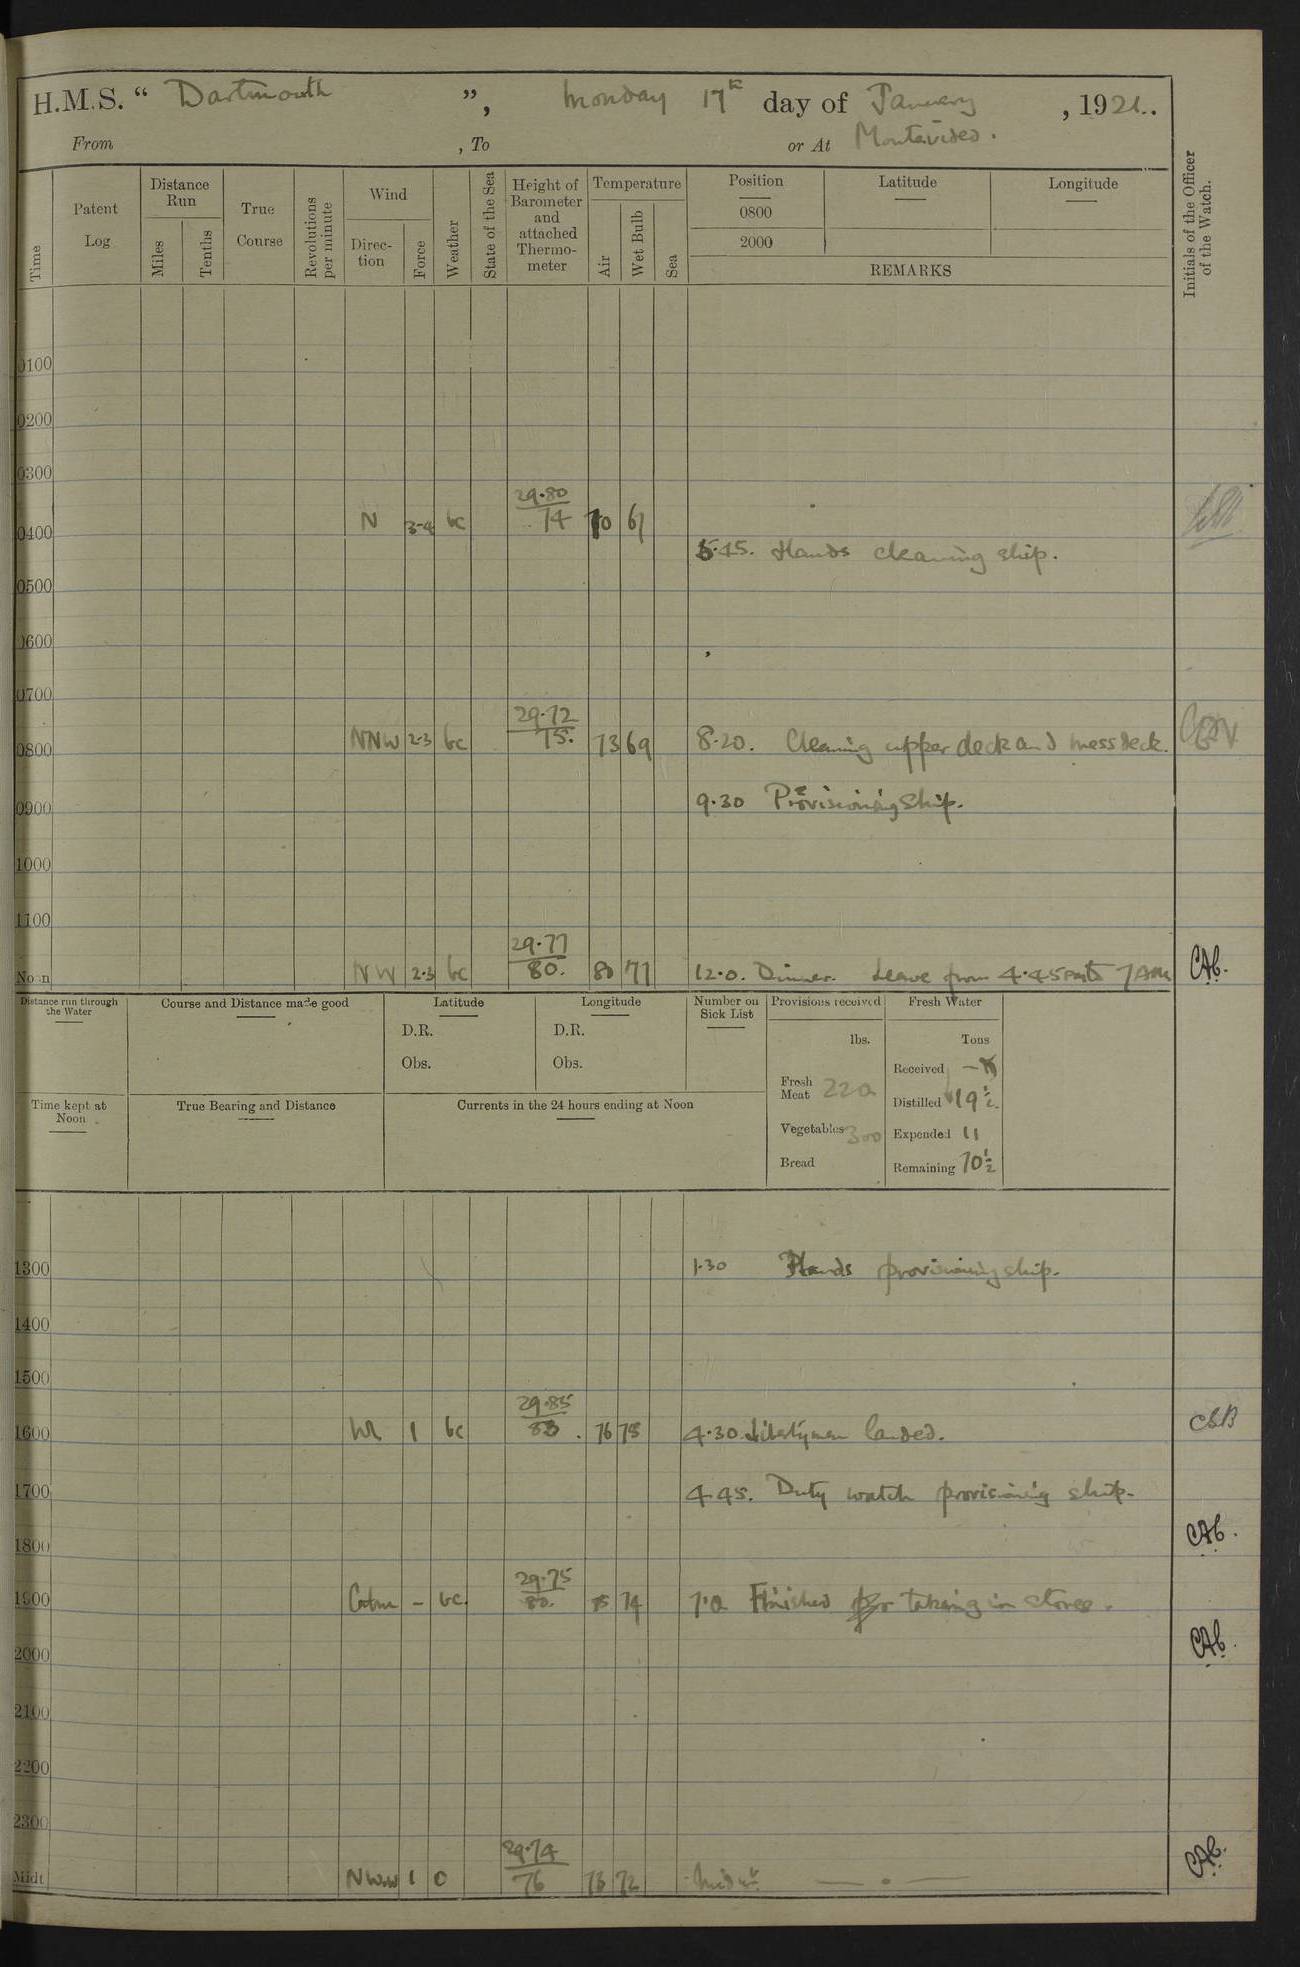 H.M.S. “ Dartmouth ”, Monday 17th day of January , 1921.
From , To or At Montevideo.
Time
Patent Log
Distance Run
Miles
Tenths
True Course
Revolutions per minute
Wind
Direc-tion
Force
Weather
State of the Sea
Height of Barometer and attached Thermo-meter
Temperature
Air
Wet Bulb
Sea
Position
0800
2000
Latitude
Longitude
REMARKS
Initials of the Officer of the Watch.
0100
0200
0300
0400 N 3-4 bc 29.80 74 70 67
5.45. Hands cleaning ship.
0500
0600
0700
0800 NNW 2-3 bc 29.72 75. 73 69 8.20. Cleaning upper deck and mess deck.
0900 9.30 Provisioning Ship.
1000
1100
Noon NW 2-3 bc 29.77 80. 80 77 12.0. Dinner. Leave from 4.45 PM to 7 AM CAb.
Distance run through the Water
Course and Distance made good
Latitude
D.R.
Obs.
Longitude
D.R.
Obs.
Number on Sick List
Provisions received
lbs.
Fresh Meat 220
Vegetables 300
Bread
Fresh Water
Tons
Received -
Distilled 19½
Expended 11
Remaining 70½
Time kept at Noon
True Bearing and Distance
Currents in the 24 hours ending at Noon
1300 1.30 Hands provisioning ship.
1400
1500
1600 1 bc 29.85 83. 76 75 4.30. Libertymen landed. CSB
1700 4.45. Duty watch provisioning ship.
1800 CAb.
1900 Calm - bc. 29.75 80. 75 74 7.0 Finished for taking in stores.
2000 CAb.
2100
2200
2300
Midt NWW 1 c 29.74 76 73 72 CAb.